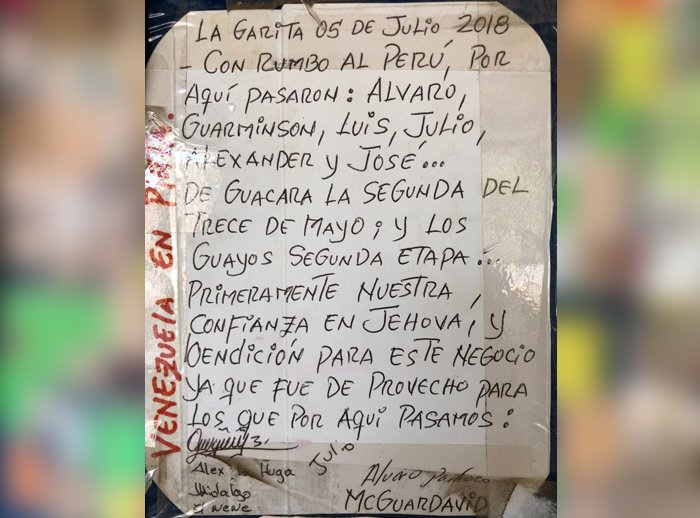 LA GARITA 05 DE JULIO 2018
- CON RUMBO AL PERÚ, POR
AQUÍ PASARON: ALVARO,
GUARMINSON, LUIS, JULIO,
ALEXANDER Y JOSÉ...
DE GUACARA LA SEGUNDA DEL
TRECE DE MAYO; Y LOS
GUAYOS SEGUNDA ETAPA...
PRIMERAMENTE NUESTRA
CONFIANZA EN JEHOVA, Y
BENDICIÓN PARA ESTE NEGOCIO
YA QUE FUE DE PROVECHO PARA
LOS QUE POR AQUÍ PASAMOS:
Julio
Alex Huga
Hidalgo
El nene
Alvaro Pacheco
MCGUARDAVID
VENEZUELA EN